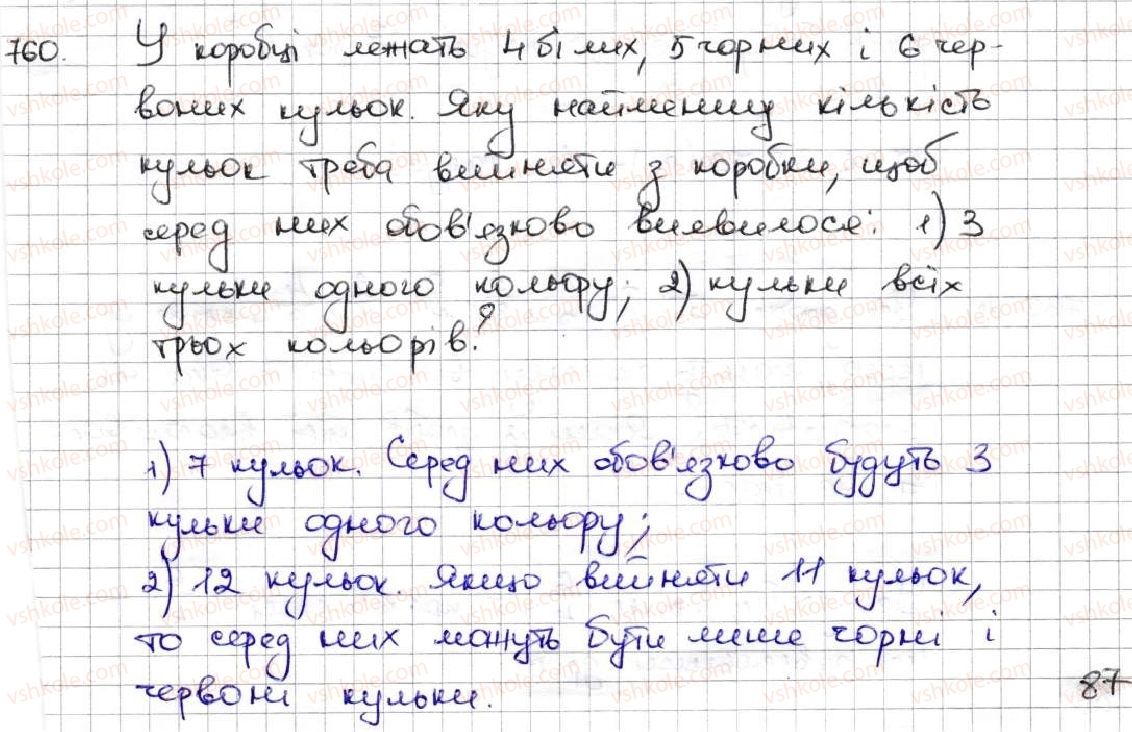 760. У коробці лежать 4 білих, 5 чорних і 6 чер-
воних кульок. Яку найменшу кількість
кульок треба вийняти з коробки, щоб
серед них обов'язково виявилося: 1) 3
кульки одного кольору; 2) кульки всіх
трьох кольорів?
1) 7 кульок. Серед них обов'язково будуть 3
кульки одного кольору;
2) 12 кульок. Якщо вийняти 11 кульок,
то серед них можуть бути лише чорні і
червоні кульки.
87